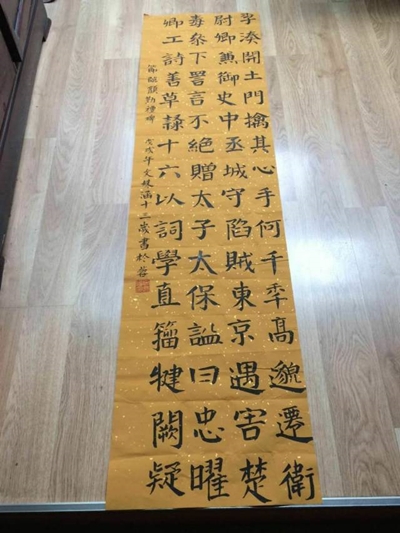 湊開土門擒其心手何千秊高邈遷衛
尉卿兼御史中丞城守陷賊東京遇害楚
毒叅下詈言不絕贈太子太保謚曰忠曜
卿工詩善草隸十六以詞學直犍闕疑
節臨顏勤禮碑
戌年文涵十三歲書於